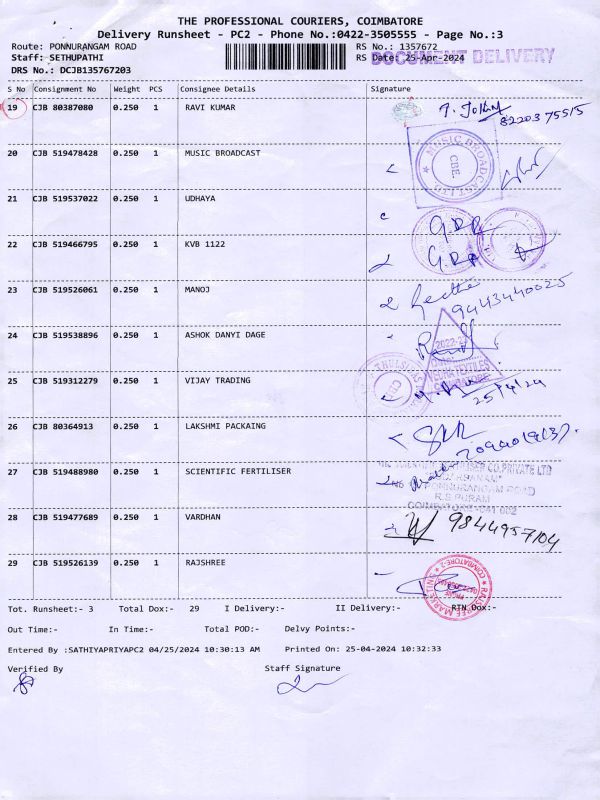 THE PROFESSIONAL COURIERS, COIMBATORE
Delivery Runsheet - PC2 - Phone No.:0422-3505555 - Page No.:3
Route: PONNURANGAM ROAD RS No.: 1357672
Staff: SETHUPATHI RS Date: 25-Apr-2024 DOCUMENT DELIVERY
DRS No.: DCJB135767203
S No Consignment No Weight PCS Consignee Details Signature
19 CJB 80387080 0.250 1 RAVI KUMAR
8220375515
20 CJB 519478428 0.250 1 MUSIC BROADCAST
MUSIC BROADCAST LTD. CBE.
21 CJB 519537022 0.250 1 UDHAYA
22 CJB 519466795 0.250 1 KVB 1122
23 CJB 519526061 0.250 1 MANOJ
9443440025
24 CJB 519538896 0.250 1 ASHOK DANYI DAGE
25 CJB 519312279 0.250 1 VIJAY TRADING
25/4/24
26 CJB 80364913 0.250 1 LAKSHMI PACKAING
27 CJB 519488980 0.250 1 SCIENTIFIC FERTILISER
PONNURANGAM ROAD
R.S.PURAM
28 CJB 519477689 0.250 1 VARDHAN
9844957104
29 CJB 519526139 0.250 1 RAJSHREE
Tot. Runsheet:- 3 Total Dox:- 29 I Delivery:- II Delivery:- RTN Dox:-
Out Time:- In Time:- Total POD:- Delvy Points:-
Entered By :SATHIYAPRIYAPC2 04/25/2024 10:30:13 AM Printed On: 25-04-2024 10:32:33
Verified By Staff Signature